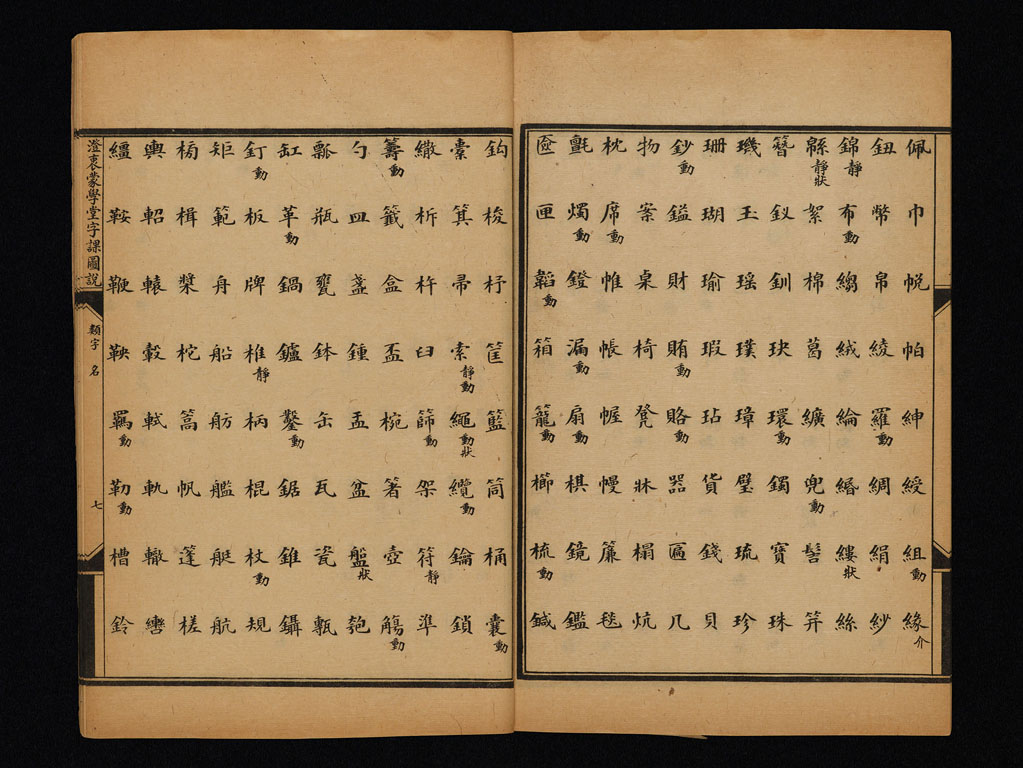 佩巾帨帕紳綬組動緣介
鈕幣帛綾羅動綢絹紗
錦靜布動縐絨綸緡縷狀絲
緜靜狀絮棉葛纊兜動髻笄
簪釵釧玦環動鐲寶珠
璣玉瑤璞璋璧琉珍
珊瑚瑜瑕玷貨錢貝
鈔動鎰財賄動賂動器匾几
物案桌椅凳牀榻炕
枕席動帷帳幄幔簾毯
氈燭動鐙漏動扇動棋鏡鑑
奩匣韜動箱籠動櫛梳動鍼
鈎梭杼筐籃筒桶囊動
橐箕帚索靜動繩動狀纜動鑰鎖
繖析杵臼篩動架符靜準
籌動籤盒盃椀箸壺觴動
勺皿盞鍾盂盆盤狀匏
瓢瓶甕鉢缶瓦瓷甄
缸革動鍋鑪鑿動鋸錐鑷
釘動板牌椎靜柄棍杖動規
矩範舟船舫艦艇航
槅楫槳柁篙帆篷槎
輿軺轅轂軾軌轍轡
繮鞍鞭鞅羈動勒動槽鈴
澄衷蒙學堂字課圖說
類字 名
七